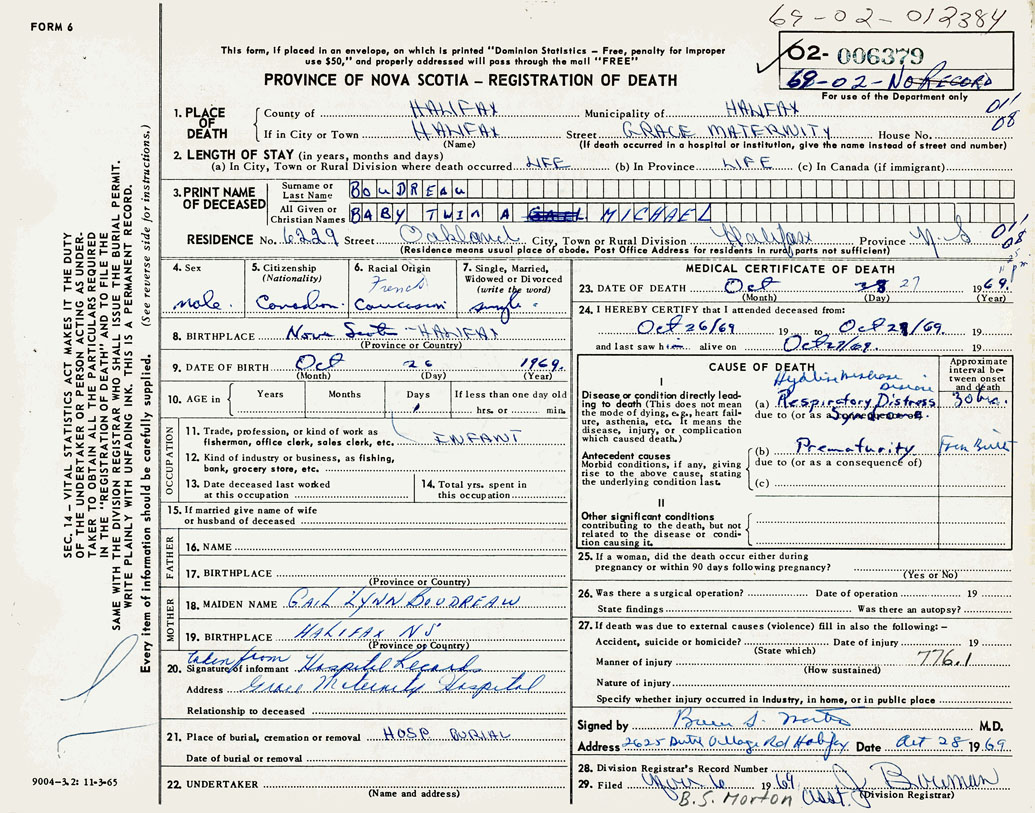 69-02-012384
FORM 6
This form, if placed in an envelope, on which is printed "Dominion Statistics – Free, penalty for improper
use $50," and properly addressed will pass through the mail "FREE"
02- 006379
69-02-NO RECORD
For use of the Department only
PROVINCE OF NOVA SCOTIA – REGISTRATION OF DEATH
1. PLACE OF DEATH
County of HALIFAX Municipality of HALIFAX 01'
If in City or Town HALIFAX Street GRACE MATERNITY House No. 08
(Name) (If death occurred in a hospital or institution, give the name instead of street and number)
2. LENGTH OF STAY (in years, months and days)
(a) In City, Town or Rural Division where death occurred LIFE (b) In Province LIFE (c) In Canada (if immigrant)
3. PRINT NAME OF DECEASED
Surname or Last Name BOUDREAU
All Given or Christian Names BABY TWIN A MICHAEL
RESIDENCE No. 6229 Street Oakland City, Town or Rural Division Halifax Province N.S 01' 08
(Residence means usual place of abode. Post Office Address for residents in rural parts not sufficient)
4. Sex
male.
5. Citizenship
(Nationality)
Canadian
6. Racial Origin
French
Caucasian
7. Single, Married,
Widowed or Divorced
(write the word)
single.
8. BIRTHPLACE Nova Scotia - HALIFAX
(Province or Country)
9. DATE OF BIRTH Oct 26 1969.
(Month) (Day) (Year)
10. AGE in Years Months Days 1 If less than one day old
hrs. or min.
OCCUPATION
11. Trade, profession, or kind of work as
fisherman, office clerk, sales clerk, etc. ENFANT
12. Kind of industry or business, as fishing,
bank, grocery store, etc.
13. Date deceased last worked
at this occupation
14. Total yrs. spent in
this occupation
15. If married give name of wife
or husband of deceased
FATHER
16. NAME
17. BIRTHPLACE
(Province or Country)
MOTHER
18. MAIDEN NAME GAIL LYNN BOUDREAU
19. BIRTHPLACE HALIFAX NS
(Province or Country)
taken from
20. Signature of informant Hospital Record
Address Grace Maternity Hospital
Relationship to deceased
21. Place of burial, cremation or removal HOSP BURIAL
Date of burial or removal
22. UNDERTAKER
(Name and address)
MEDICAL CERTIFICATE OF DEATH
23. DATE OF DEATH Oct 27 1969.
(Month) (Day) (Year)
24. I HEREBY CERTIFY that I attended deceased from:
Oct 26/69 19 to Oct 27/69. 19
and last saw him alive on Oct 27/69. 19
CAUSE OF DEATH
Approximate interval between onset and death
I
Disease or condition directly leading to death (This does not mean
the mode of dying, e.g., heart failure, asthenia, etc. It means the
disease, injury, or complication
which caused death.)
Hyaline Membrane
Disease
(a) Respiratory Distress
due to (or as
Antecedent causes
Morbid conditions, if any, giving
rise to the above cause, stating
the underlying condition last.
(b) Prematurity From Birth
due to (or as a consequence of)
(c)
II
Other significant conditions
contributing to the death, but not
related to the disease or condition causing it.
25. If a woman, did the death occur either during
pregnancy or within 90 days following pregnancy?
(Yes or No)
26. Was there a surgical operation? Date of operation 19
State findings Was there an autopsy?
27. If death was due to external causes (violence) fill in also the following: –
Accident, suicide or homicide? Date of injury 19
(State which)
Manner of injury 776.1
(How sustained)
Nature of injury
Specify whether injury occurred in industry, in home, or in public place
Signed by M.D.
Address 2625 Dutch Village Rd Halifax Date Oct 28 1969
28. Division Registrar's Record Number
29. Filed Nov 6 1969 J Bowman
B.S. Morton Asst. (Division Registrar)
SEC. 14 – VITAL STATISTICS ACT MAKES IT THE DUTY
OF THE UNDERTAKER OR PERSON ACTING AS UNDERTAKER TO OBTAIN ALL THE PARTICULARS REQUIRED
IN THE "REGISTRATION OF DEATH" AND TO FILE THE
SAME WITH THE DIVISION REGISTRAR WHO SHALL ISSUE THE BURIAL PERMIT.
WRITE PLAINLY WITH UNFADING INK. THIS IS A PERMANENT RECORD.
Every item of information should be carefully supplied. (See reverse side for instructions.)
9004-3.2: 11-3-65